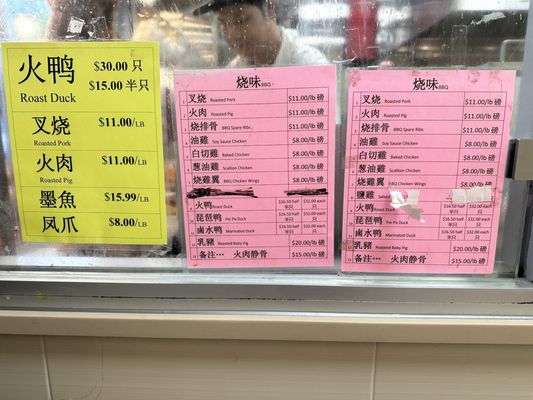 火鴨 $30.00 只
Roast Duck $15.00 半只
叉烧 $11.00/LB
Roasted Pork
火肉 $11.00/LB
Roasted Pig
墨魚 $15.99/LB
凤爪 $8.00/LB
烧味
BBQ
叉烧 Roasted Pork $11.00/lb 磅
火肉 Roasted Pig $11.00/lb 磅
烧排骨 BBQ Spare Ribs $11.00/lb 磅
油雞 Soy Sauce Chicken $8.00/lb 磅
白切雞 Baked Chicken $8.00/lb 磅
葱油雞 Scallion Chicken $8.00/lb 磅
烧雞翼 BBQ Chicken Wings $8.00/lb 磅
火鴨 Roast Duck $16.50 half 半只 $32.00 each 只
琵琶鴨 Pei Pa Duck $16.50 half 半只 $32.00 each 只
鹵水鴨 Marinated Duck $16.50 half 半只 $32.00 each 只
乳豬 Roasted Baby Pig $20.00/lb 磅
备注… 火肉静骨 $15.00/lb 磅
烧味
BBQ
叉烧 Roasted Pork $11.00/lb 磅
火肉 Roasted Pig $11.00/lb 磅
烧排骨 BBQ Spare Ribs $11.00/lb 磅
油雞 Soy Sauce Chicken $8.00/lb 磅
白切雞 Baked Chicken $8.00/lb 磅
葱油雞 Scallion Chicken $8.00/lb 磅
烧雞翼 BBQ Chicken Wings $8.00/lb 磅
鹽雞 Salted
火鴨 Roast Duck $16.50 half 半只 $32.00 each 只
琵琶鴨 Pei Pa Duck $16.50 half 半只 $32.00 each 只
鹵水鴨 Marinated Duck $16.50 half 半只 $32.00 each 只
乳豬 Roasted Baby Pig $20.00/lb 磅
备注… 火肉静骨 $15.00/lb 磅